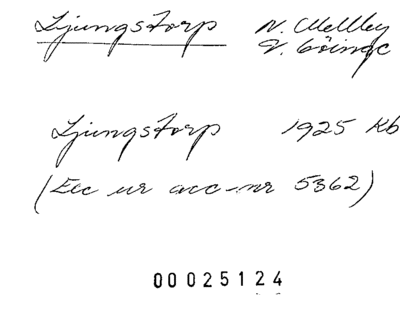 Ljungstorp N. Mellby
V. Göinge
Ljungstorp 1925 Kb
(Exc ur acc-nr 5362)
00025124